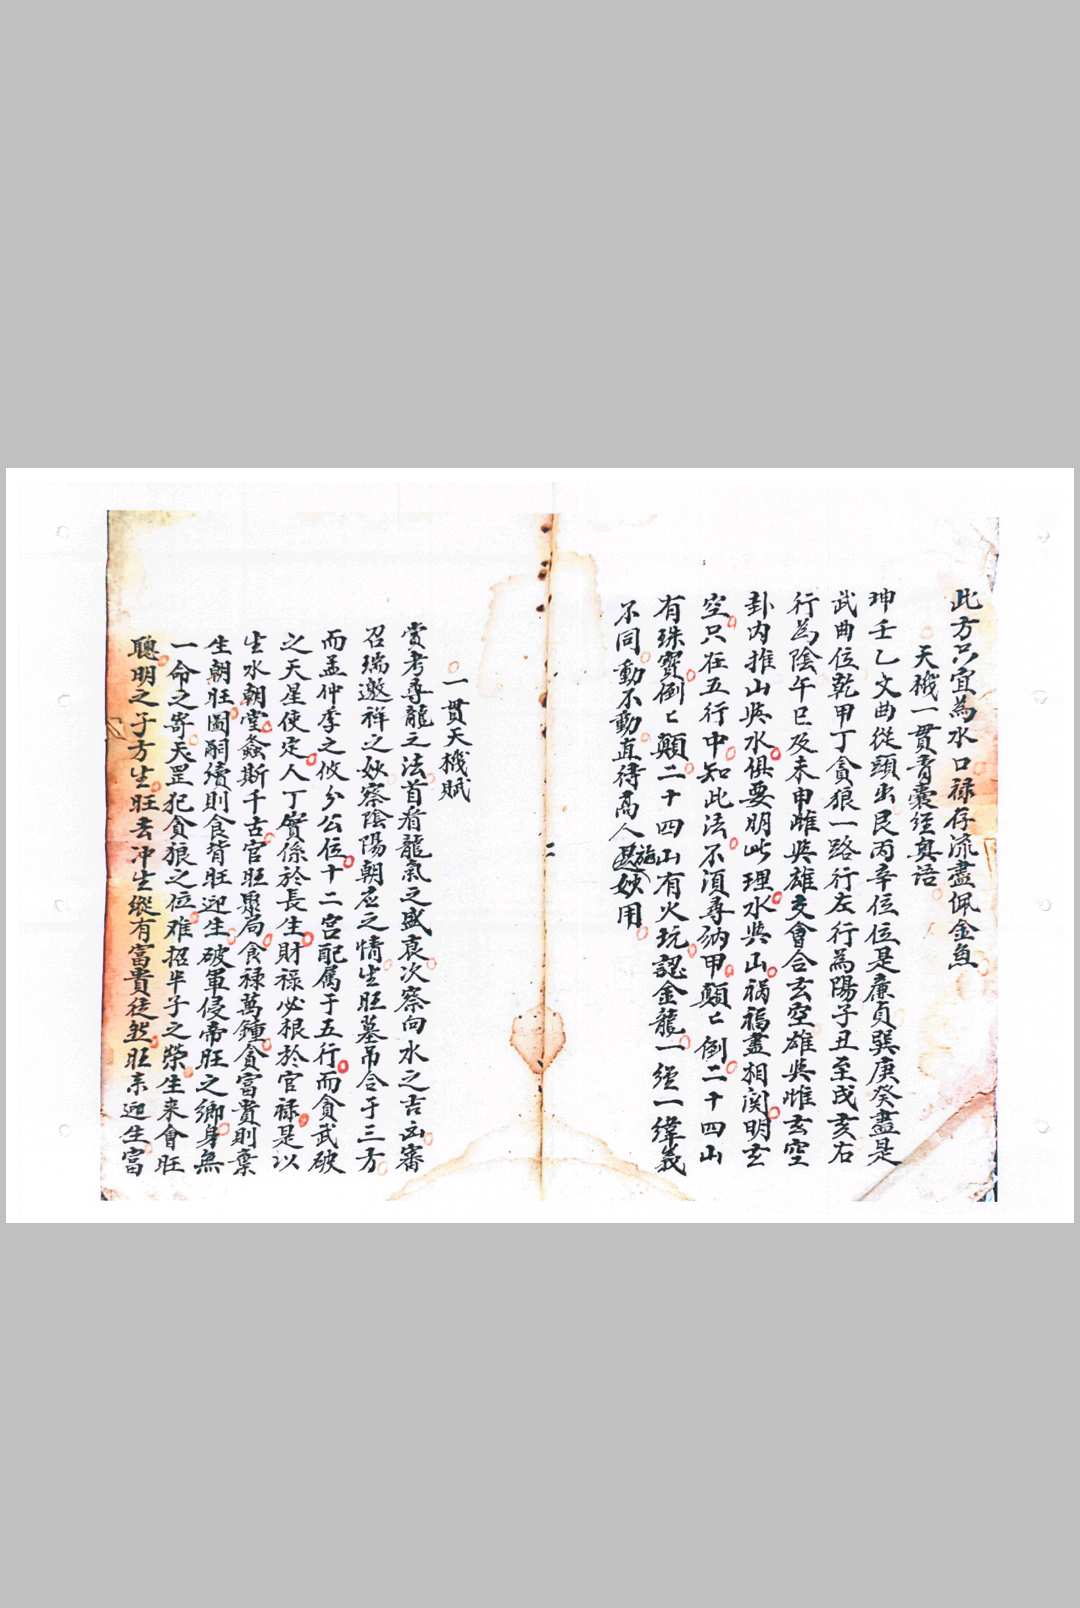 此方只宜為水口禄存流盡佩金魚
天機一貫青囊經奧语
坤壬乙文曲從頭出艮丙辛位位是廉貞巽庚癸盡是
武曲位乾甲丁貪狼一路行左行為陽子丑至戌亥右
行為陰午巳及未申雌與雄交會合玄空雄與雌玄空
卦内推山與水俱要明此理水與山祸福盡相関明玄
空只在五行中知此法不須尋納甲顛〻倒二十四山
有珠寶倒〻顛二十四山有火坑認金龍一經一緯義
不同動不動直待高人施妙用
二
一貫天機賦
賞考尋龍之法首看龍氣之盛衰次察向水之吉凶審
召瑞邀祥之妙察陰陽朝应之情生旺墓吊合于三方
而孟仲季之攸分公位十二宫配属于五行而貪武破
之天星使定人丁實係於長生財禄必根於官禄是以
生水朝堂螽斯千古官旺聚局食禄萬鍾貪富貴則棄
生朝旺圖嗣續則食背旺迎生破軍侵帝旺之鄉身無
一命之寄天罡犯貪狼之位难招半子之榮生来會旺
聰明之子方生旺去冲生縱有富貴徒然旺来迎生富